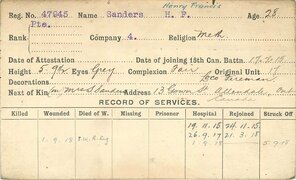 Henry Francis
Reg. No. 47945 Name Sanders H. F. Age 28
Rank Pte. Company 4. Religion Meth
Date of Attestation Date of joining 15th Can. Battn. 17.2.15
Height 5 9½ Eyes Grey Complexion Fair Original Unit 17
Decorations Loco Fireman
Next of Kin (m) Mrs S Sanders Address 13 Gowan St. Allandale, Ont
Canada
RECORD OF SERVICES.
Killed Wounded Died of W. Missing Prisoner Hospital Rejoined Struck Off
19.11.15 24.11.15
26.9.17 21.3.18
1.9.18 1.9.18 5.9.18